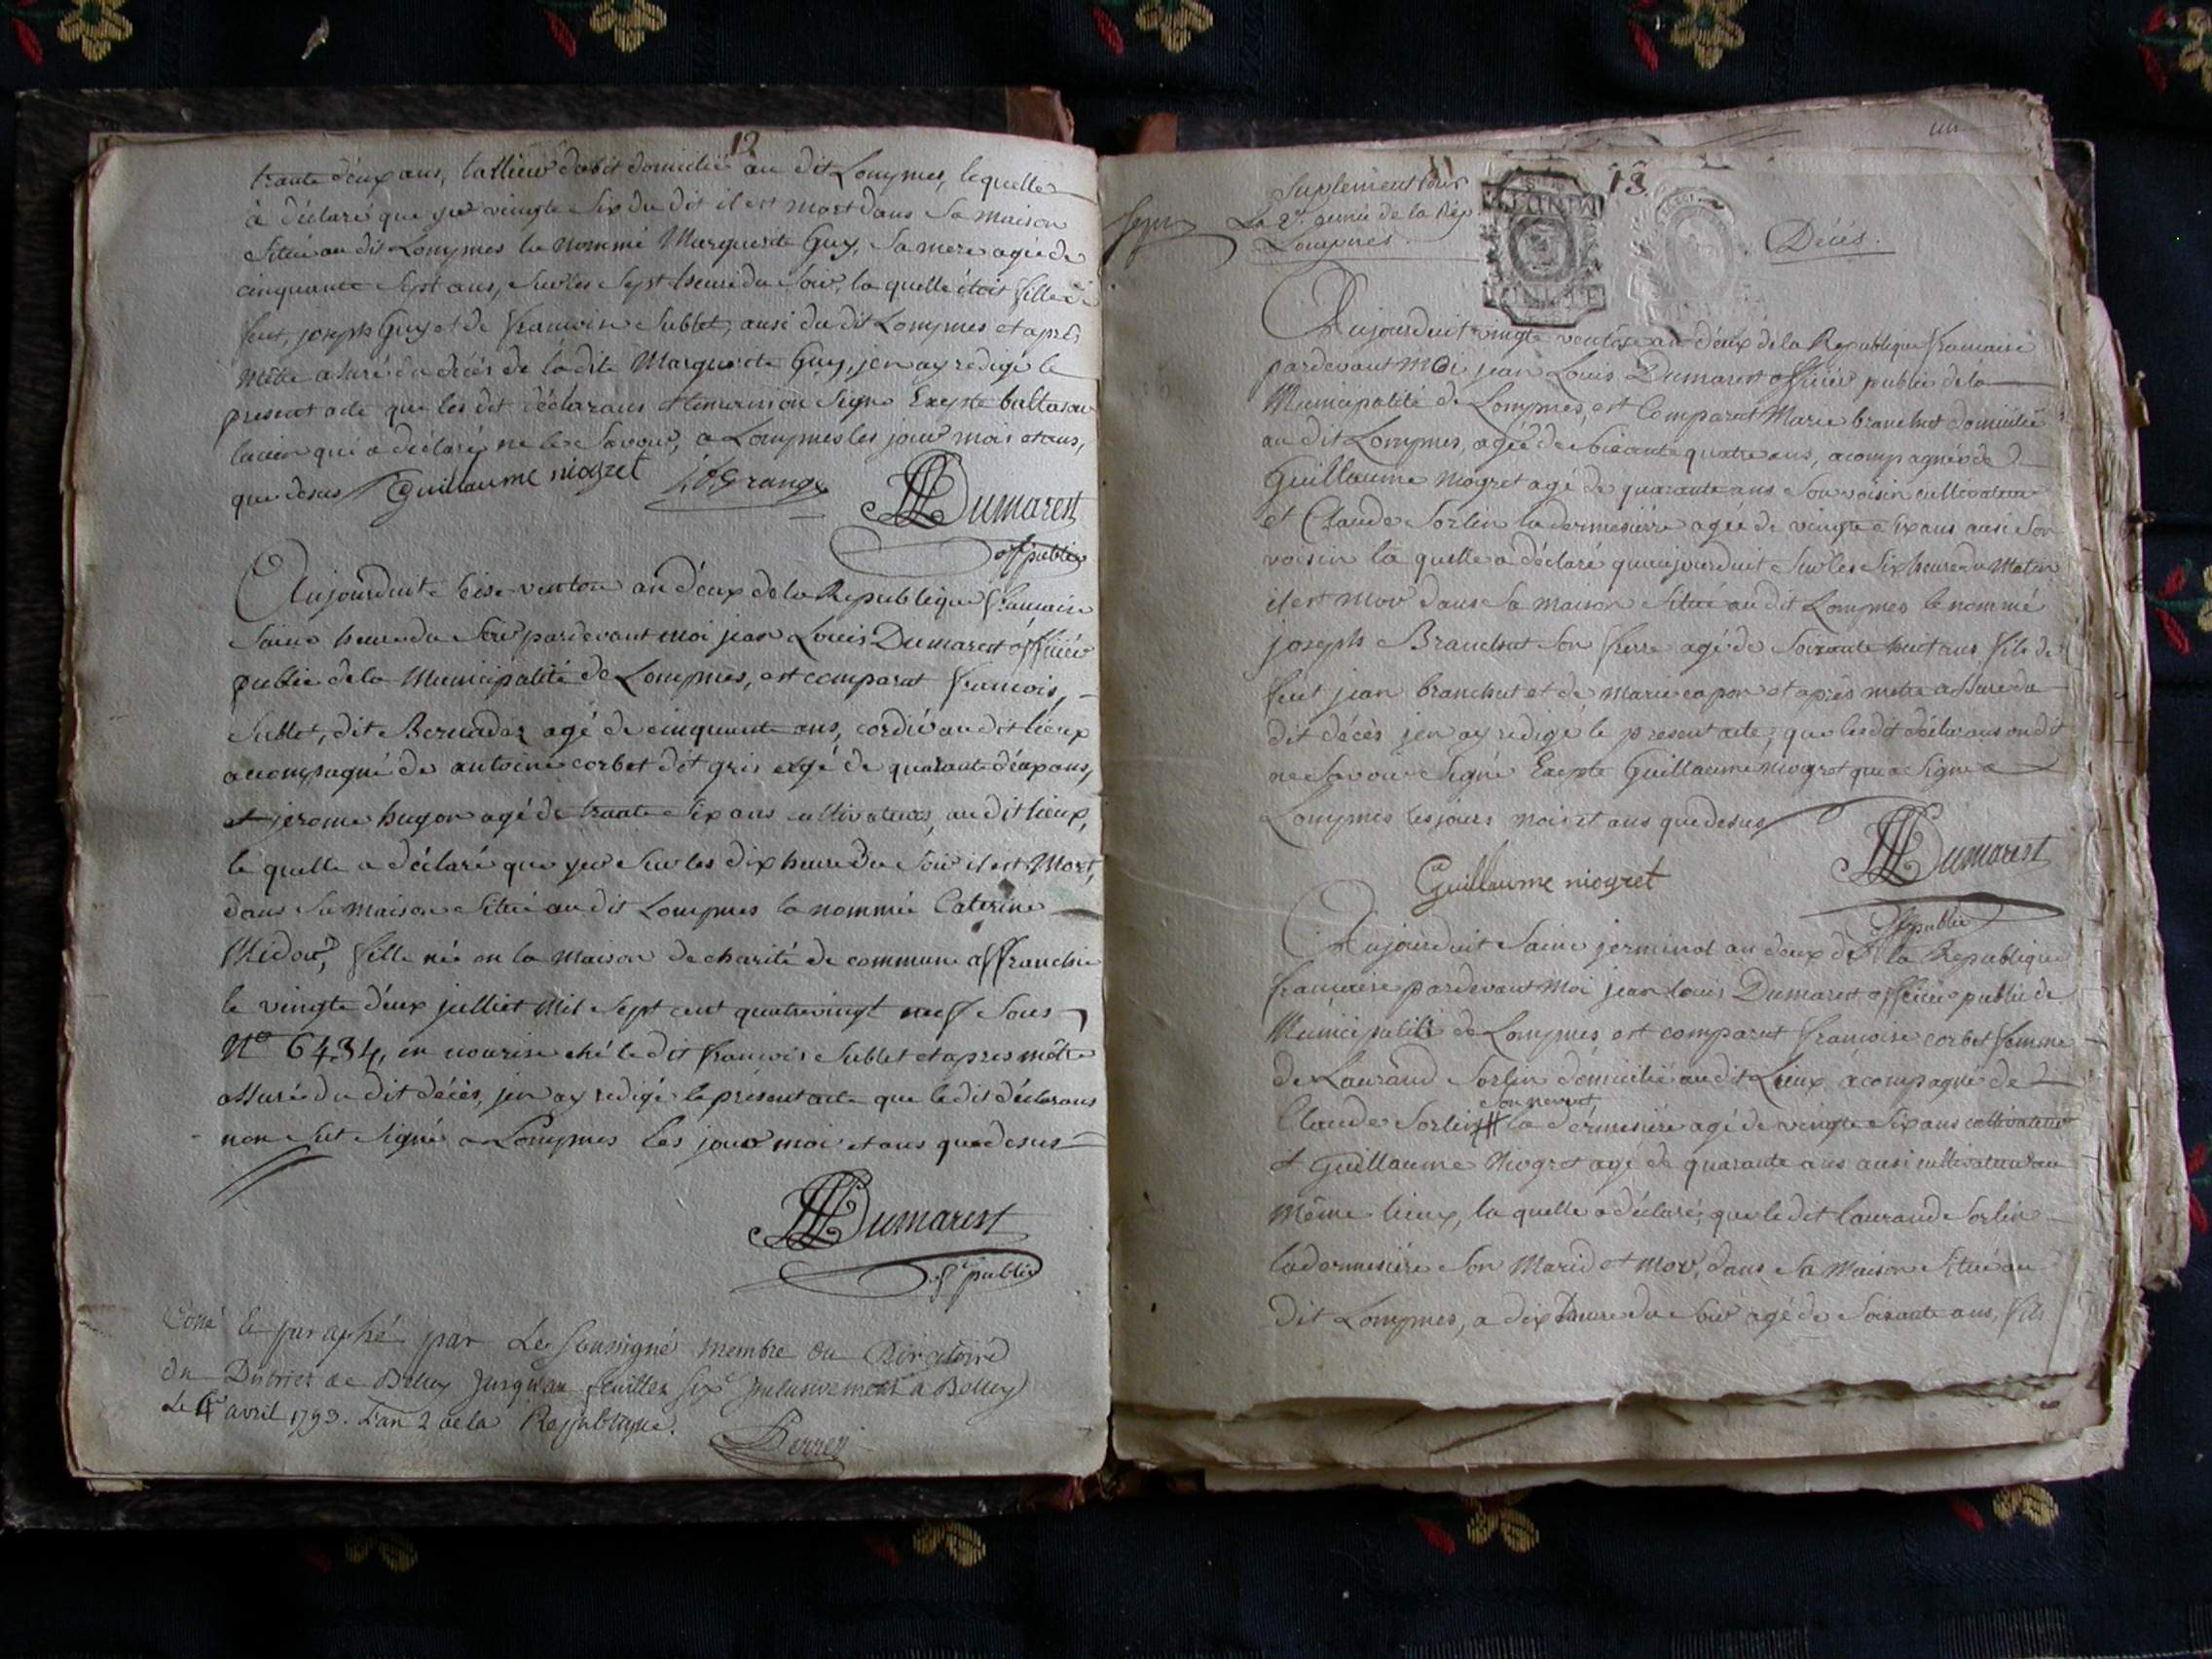 12
trante déux ans, tallieur d'abit domicilié au dit Lompnes, lequelle
à déclaré que yer vingte six du dit il est mort dans sa maison
située au dit Lompnes la nommé Marguerite Guy, sa mere agée de
cinquante sept ans, sur les sept heure du soir, la quelle étoit fille de
feut, joseph Guy et de francoise Sublet, ausi du dit Lompnes et aprés
mêtre asuré du décés de la dite Marguerite Guy, jen ay redigé le
present acte que les dit déclarans et temoins on signe Exepte baltasar
qui a déclaré ne le savoir, a Lompnes les jour mois et ans,
que desus Guillaume niogret
JLDumarest
off public
Aujourduit seise ventose an déux de la Republique francaise
heure du soir pardevant moi jean Louis Dumarest officier
public de la Municipalité de Lompnes, est comparut francois,
Sublet, dit Bernadaz agé de cinquante ans, cordié au dit lieux
acompagné de antoine corbet dit gris agé de quarante déux ans,
et jerome hugon agé de trante six ans cultivateurs, au dit lieux,
le quelle a déclaré que yer sur les dix heure du soir il est Mort,
dans sa maison située au dit Lompnes la nommée Caterine
Midor, fille née en la maison de charité de commune affranchie
le vingte déux julliet mil sept cent quatrevingt neuf sous
N° 6434, en nourise ché le dit francois Sublet et apres mêtre
assuré du dit décés, jen ay redigé le présent acte que le dit déclarans
non sut signé a Lompnes les jour moi et ans que desus
JLDumarest
off public
Cotté et paraphé par Le soussigné membre du Directoire
du District de Belley jusqu'au feuillet six inclusivement a Belley
Le 4 avril 1793. L'an 2 de la Republique.
Perret
13
Suplement pour
La 2e année de la Rép.
Lompnes
Décés.
Aujourduit vingte ventose an déux de la Republique francaise
pardevant Moi jean Louis Dumarest officier public de la
Municipalité de Lompnes, est Comparut Marie branchut domiciliée
au dit Lompnes, agée de soixante quatre ans, acompagnée de
Guillaume niogret agé de quarante ans son voisin cultivateur
et Claude Sorlin ladermesiere agée de vingte six ans ausi son
voisin la quelle a déclaré quaujourduit sur les six heure du Matin
il est mor dans sa maison située au dit Lompnes le nommé
joseph Branchut son frere agé de soixante huit ans fils de
feut jean branchut et de marie capon et aprés metre assure du
dit décés jen ay redigé le present acte, que les dit déclarans on dit
ne savoir signé Exepte Guillaume niogret qui a signé a
Lompnes les jours mois et ans que desus
JLDumarest
Guillaume niogret
off public
Aujourduit jerminal an deux de la Republique
francaise pardevant Moi jean louis Dumarest officier public de
Municipalité de Lompnes est comparut francoise corbet femme
de Laurand Sorlin domicilié au dit Lieux, acompagné de
son neveut
Claude Sorlin # la dérmesiere agé de vingte six ans cultivateur
et Guillaume Niogret agé de quarante ans ausi cultivateur au
même lieux, la quelle a déclaré, que le dit laurand Sorlin
ladermesiere son Marid et mor, dans sa Maison située au
dit Lompnes, a dix heure du soir agé de soixante ans, fils